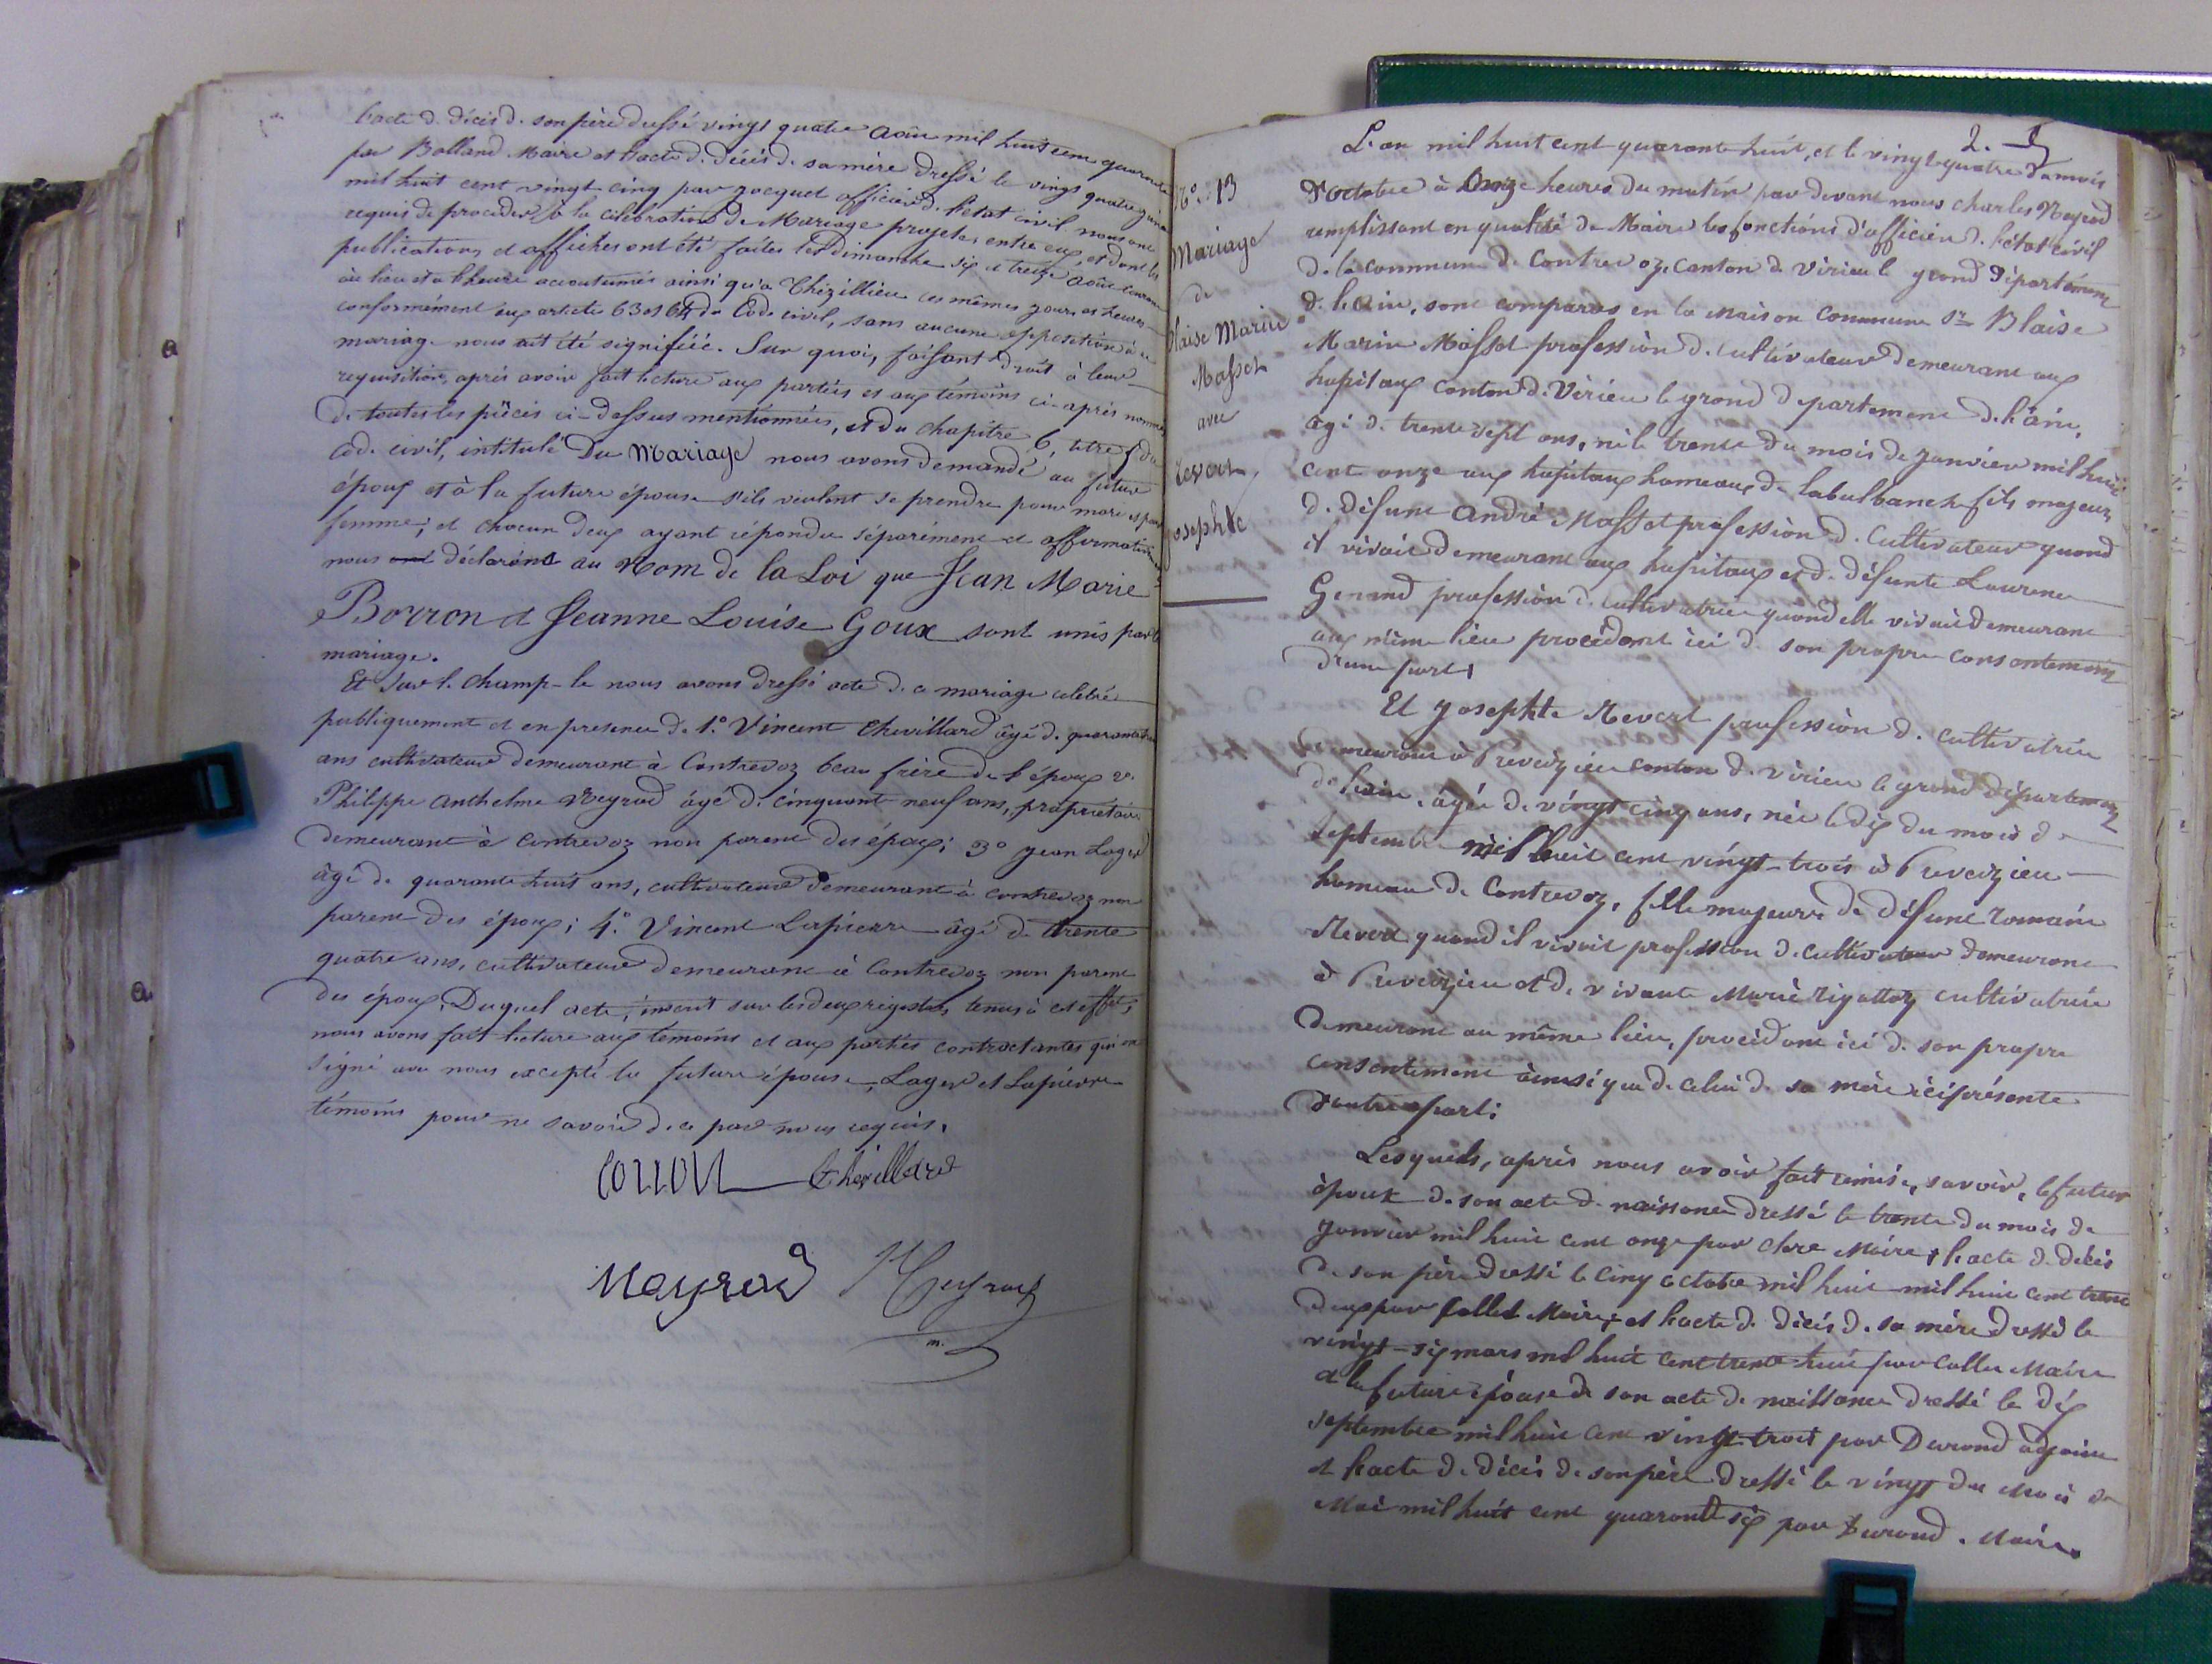 l'acte de décès de son père dressé vingt quatre août mil huit cent quarante
par Bolland Maire et l'acte de décès de sa mère dressé le vingt quatre
mil huit cent vingt cinq par Jocquet officier de l'état civil nous ont
requis de procéder à la célébration de Mariage projeté entre eux, et dont les
publications et affiches ont été faites les dimanche six et treize août courant
au lieu et à l'heure accoutumés ainsi qu'à Chizillieu les mêmes jours et heures
conformément aux articles 63 et 64 du Code civil, sans aucune opposition à ce
mariage nous ait été signifiée. Sur quoi, faisant droit à leur
requisition, après avoir fait lecture aux parties et aux témoins ci-après nommés
de toutes les pièces ci-dessus mentionnées, et du chapitre 6, titre 5 du
code civil, intitulé Du Mariage nous avons demandé au futur
époux et à la future épouse s'ils veulent se prendre pour mari et pour
femme; et chacun d'eux ayant répondu séparément et affirmativement
nous déclarons au Nom de la Loi que Jean Marie
Borron et Jeanne Louise Goux sont unis par le
mariage.
Et sur le champ-le nous avons dressé acte de ce mariage célébré
publiquement et en présence de 1.° Vincent Chevillard âgé de quarante
ans cultivateur demeurant à Contrevoz beau frère de l'époux 2.°
Philippe Anthelme Neyrod âgé de cinquante neuf ans, propriétaire
demeurant à Contrevoz non parent des époux; 3° Jean Loger
âgé de quarante huit ans, cultivateur demeurant à Contrevoz non
parent des époux; 4.° Vincent Lapierre âgé de trente
quatre ans, cultivateur demeurant à Contrevoz non parent
des époux. Duquel acte, inscrit sur les deux registres tenus à cet effet,
nous avons fait lecture aux témoins et aux parties contractantes qui ont
signé avec nous excepté la future épouse, Loger et Lapierre
témoins pour ne savoir de ce par nous requis.
Chevillard
Neyrod Neyrod
m.
N.° 13
Mariage
de
Blaise Marin
Massot
avec
Revert
Josephte
2.
L'an mil huit cent quarante huit, et le vingt quatre du mois
d'octobre à Onze heures du matin par devant nous Charles Neyrod
remplissant en qualité de Maire les fonctions d'officier de l'état civil
de la commune de Contrevoz, canton de Virieu le grand Département
de l'Ain, sont comparus en la Maison Commune Sr Blaise
Marin Massot profession de cultivateur demeurant aux
hopitaux canton de Virieu le grond Departement de l'ain,
âgé de trente sept ans, né le trente du mois de Janvier mil huit
cent onze aux hopitaux hameaux de labalbanche fils majeur
de défunt André Massot profession de Cultivateur quand
il vivait demeurant aux hopitaux et de défunte Laurence
Genand profession de cultivatrice quand elle vivait demeurant
au même lieu procédant ici de son propre consentement
d'une part,
Et Josephte Revert profession de cultivatrice
demeurant à Preveyzieu canton de Virieu le grand département
de l'ain, âgée de vingt cinq ans, née le dix du mois de
septembre mil huit cent vingt-trois à Preveyzieu
hameau de Contrevoz, fille majeure de défunt Romain
Revert quand il vivait profession de cultivateur demeurant
à Preveyzieu et de vivante Marie Rigottoz cultivatrice
demeurant au même lieu, procédant ici de son propre
consentement ainsi que de celui de sa mère ici présente
d'autre part;
Lesquels, après nous avoir fait remise, savoir, le futur
époux de son acte de naissance dressé le trente du mois de
Janvier mil huit cent onze par Clerc Maire, l'acte de décès
de son père dressé le cinq octobre mil huit mil huit cent trente
deux par follet Maire, et l'acte de décès de sa mère dressé le
vingt-six mars mil huit cent trente huit par Collet Maire
et la future épouse de son acte de naissance dressé le dix
septembre mil huit cent vingt-trois par Durond adjoint
et l'acte de décès de son père dressé le vingt du mois de
Mai mil huit cent quarante six par Durond. Maire.